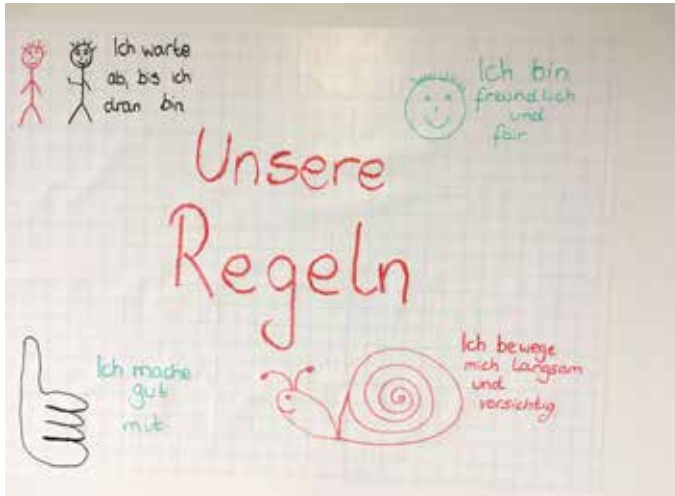 Ich warte
ab, bis ich
dran bin
Ich bin
freundlich
und
fair
Unsere
Regeln
Ich mache
gut
mit
Ich bewege
mich langsam
und
vorsichtig